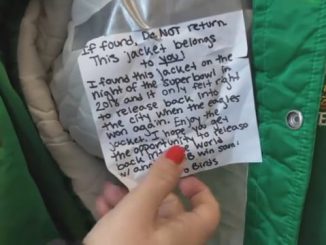 If found, Do NOT return
This jacket belongs
to you!
I found this jacket on the
night of the superbowl in
2018 and it only felt right
to release back into
the city when the eagles
won again. Enjoy the
jacket. I hope you get
the opportunity to release
back into the world
w/ another win sam!
Go Birds